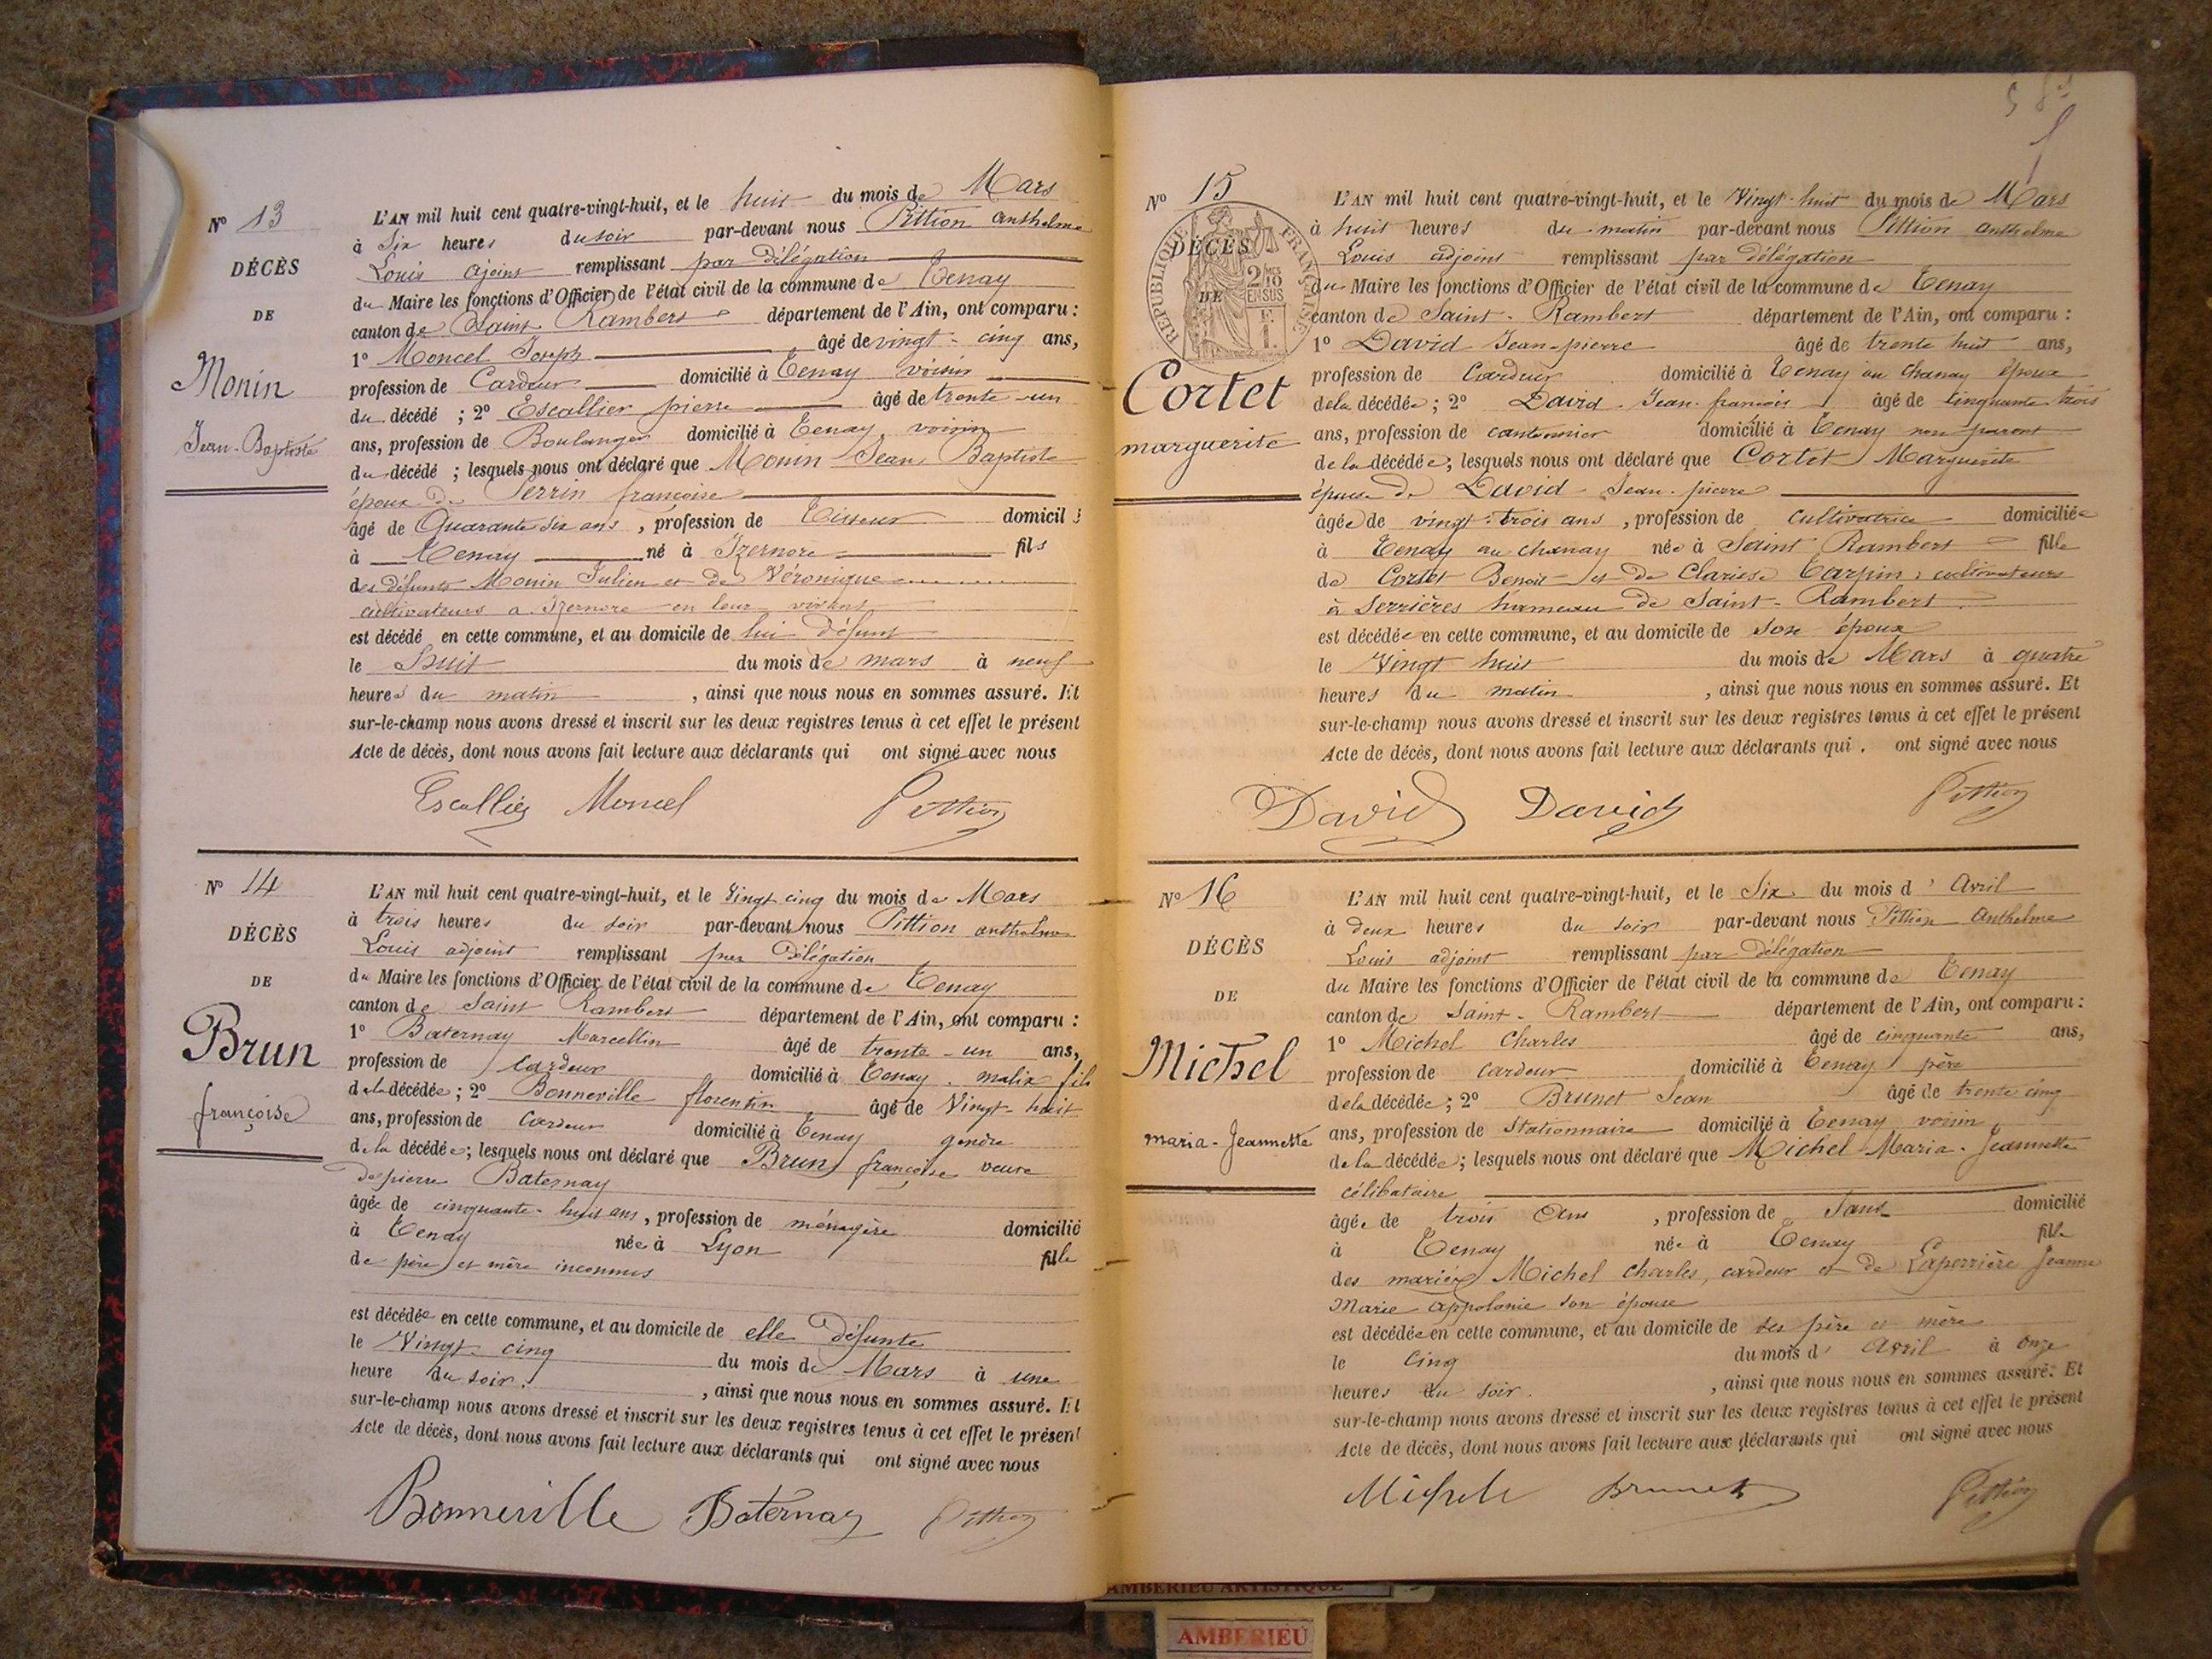 Nº 13
DÉCÈS
DE
Monin
Jean-Baptiste
L'AN mil huit cent quatre-vingt-huit, et le huit du mois de Mars
à Six heures du soir par-devant nous Pittion anthelme
Louis ajoint remplissant par délégation
du Maire les fonctions d'Officier de l'état civil de la commune de Tenay
canton de Saint Rambert département de l'Ain, ont comparu :
1º Moncel Joseph âgé de vingt-cinq ans,
profession de Cardeur domicilié à Tenay voisin
du décédé ; 2º Escallier pierre âgé de trente-un
ans, profession de Boulanger domicilié à Tenay voisin
du décédé ; lesquels nous ont déclaré que Monin Jean Baptiste
époux de Perrin françoise
âgé de Quarante six ans, profession de Tisseur domicilié
à Tenay né à Izernore fils
des défunts Monin Julien et de Véronique
cultivateurs a Izernore en leur vivant
est décédé en cette commune, et au domicile de lui défunt
le huit du mois de mars à neuf
heures du matin, ainsi que nous nous en sommes assuré. Et
sur-le-champ nous avons dressé et inscrit sur les deux registres tenus à cet effet le présent
Acte de décès, dont nous avons fait lecture aux déclarants qui ont signé avec nous
Escallier Moncel Pittion
Nº 14
DÉCÈS
DE
Brun
françoise
L'AN mil huit cent quatre-vingt-huit, et le Vingt cinq du mois de Mars
à trois heures du soir par-devant nous Pittion anthelme
Louis adjoint remplissant par Délégation
du Maire les fonctions d'Officier de l'état civil de la commune de Tenay
canton de Saint Rambert département de l'Ain, ont comparu :
1º Baternay Marcellin âgé de trente-un ans,
profession de cardeur domicilié à Tenay fils
de la décédée ; 2º Bonneville florentin âgé de Vingt-huit
ans, profession de Cardeur domicilié à Tenay gendre
de la décédée ; lesquels nous ont déclaré que Brun françoise veuve
de pierre Baternay
âgée de cinquante-huit ans, profession de ménagère domicilié
à Tenay née à Lyon fille
de père et mère inconnus
est décédée en cette commune, et au domicile de elle Défunte
le Vingt-cinq du mois de Mars à une
heure du soir, ainsi que nous nous en sommes assuré. Et
sur-le-champ nous avons dressé et inscrit sur les deux registres tenus à cet effet le présent
Acte de décès, dont nous avons fait lecture aux déclarants qui ont signé avec nous
Bonneville Baternay Pittion
Nº 15
DÉCÈS
DE
RÉPUBLIQUE FRANÇAISE
2/10 EN SUS
Cortet
marguerite
L'AN mil huit cent quatre-vingt-huit, et le Vingt-huit du mois de Mars
à huit heures du matin par-devant nous Pittion anthelme
Louis adjoint remplissant par délégation
du Maire les fonctions d'Officier de l'état civil de la commune de Tenay
canton de Saint-Rambert département de l'Ain, ont comparu :
1º David Jean-pierre âgé de trente huit ans,
profession de Cardeur domicilié à Tenay au chanay époux
de la décédée ; 2º David Jean-françois âgé de cinquante trois
ans, profession de cantonnier domicilié à Tenay non parent
de la décédée ; lesquels nous ont déclaré que Cortet Marguerite
épouse de David Jean-pierre
âgée de vingt-trois ans, profession de cultivatrice domiciliée
à Tenay au chanay née à Saint Rambert fille
de Cortet Benoit et de Clarisse Carpin, cultivateurs
à Serrières hameau de Saint-Rambert
est décédée en cette commune, et au domicile de son époux
le Vingt huit du mois de Mars à quatre
heures du matin, ainsi que nous nous en sommes assuré. Et
sur-le-champ nous avons dressé et inscrit sur les deux registres tenus à cet effet le présent
Acte de décès, dont nous avons fait lecture aux déclarants qui . ont signé avec nous
David David Pittion
Nº 16
DÉCÈS
DE
Michel
maria-Jeannette
L'AN mil huit cent quatre-vingt-huit, et le Six du mois d'Avril
à deux heures du soir par-devant nous Pittion Anthelme
Louis adjoint remplissant par délégation
du Maire les fonctions d'Officier de l'état civil de la commune de Tenay
canton de Saint-Rambert département de l'Ain, ont comparu :
1º Michel Charles âgé de cinquante ans,
profession de cardeur domicilié à Tenay père
de la décédée ; 2º Brunet Jean âgé de trente cinq
ans, profession de Stationnaire domicilié à Tenay voisin
de la décédée ; lesquels nous ont déclaré que Michel Maria-Jeannette
célibataire
âgée de trois ans, profession de Sans domicilié
à Tenay née à Tenay fille
des mariés Michel charles, cardeur et de Laperrière Jeanne
Marie appolonie son épouse
est décédée en cette commune, et au domicile de ses père et mère
le cinq du mois d'Avril à onze
heures du soir, ainsi que nous nous en sommes assuré. Et
sur-le-champ nous avons dressé et inscrit sur les deux registres tenus à cet effet le présent
Acte de décès, dont nous avons fait lecture aux déclarants qui ont signé avec nous
Michel Brunet Pittion
AMBERIEU ARTISTIQUE
AMBERIEU